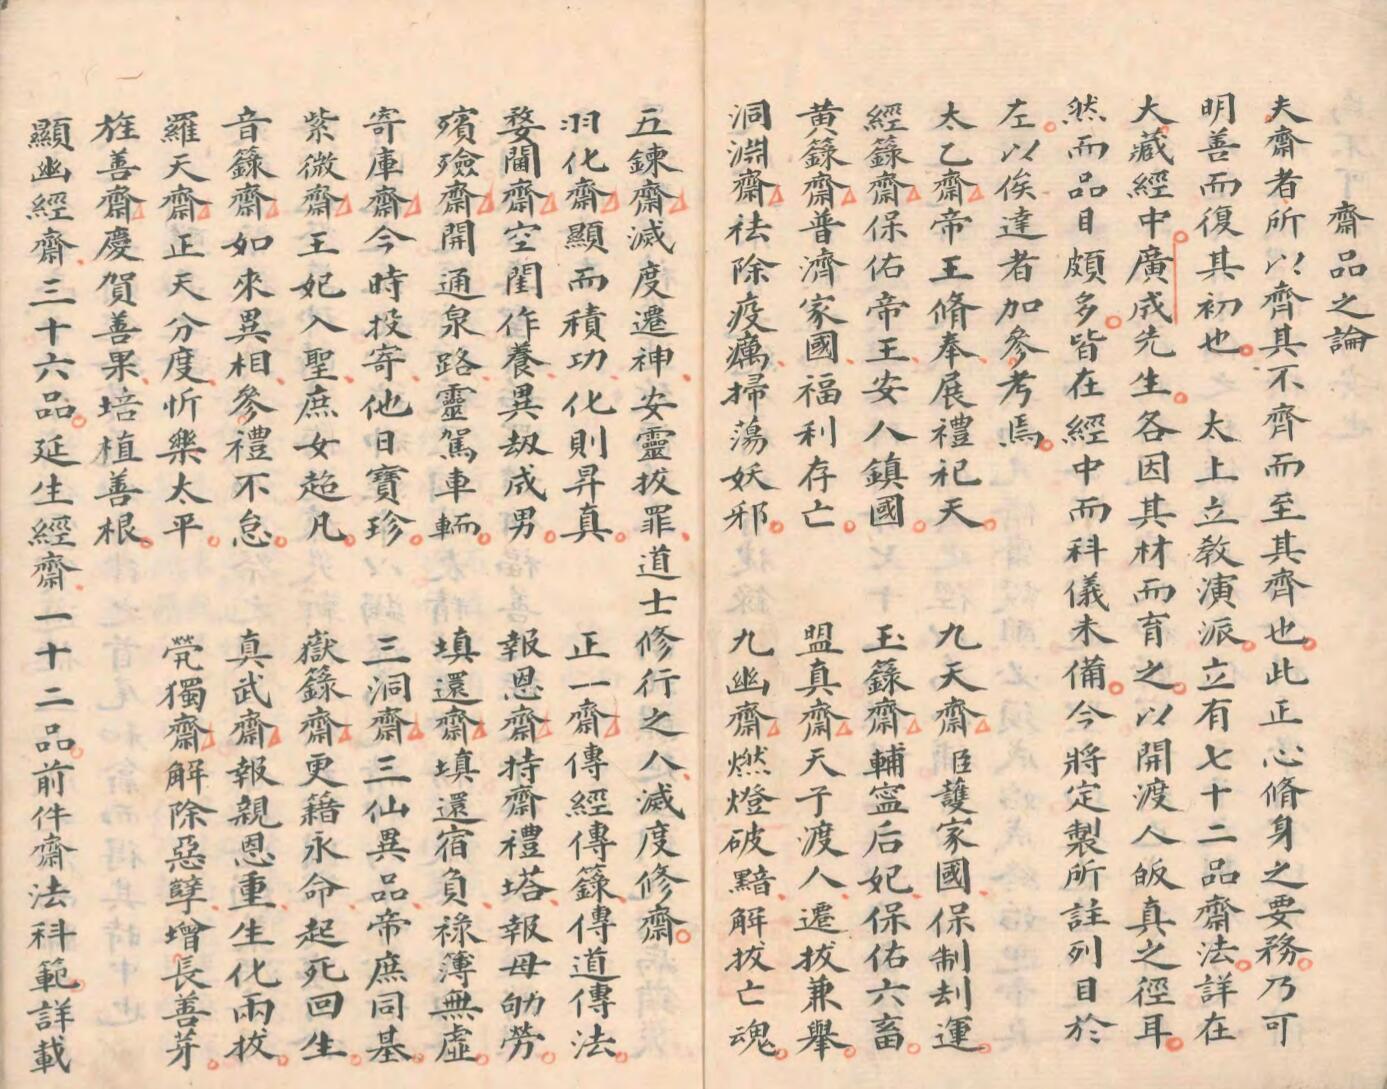 齋品之論
夫齋者所以齊其不齊而至其齊也此正心脩身之要務乃可
明善而復其初也 太上立教演派立有七十二品齋法詳在
大藏經中廣成先生各因其材而育之以開渡人皈真之徑耳
然而品目頗多皆在經中而科儀未備今將定製所註列目於
左以俟達者加參考焉
太乙齋帝王脩奉展禮祀天 九天齋臣護家國保制刦運
經籙齋保佑帝王安人鎮國 玉籙齋輔寍后妃保佑六畜
黃籙齋普濟家國福利存亡 盟真齋天子渡人遷拔兼舉
洞淵齋祛除疫癘掃蕩妖邪 九幽齋燃燈破黯解拔亡魂
五鍊齋滅度遷神安靈拔罪道士修行之人滅度修齋
羽化齋顯而積功化則昇真 正一齋傳經傳籙傳道傳法
婺閫齋空閨作養異刼成男 報恩齋持齋禮塔報母劬勞
殯殮齋開通泉路靈駕車輀 填還齋填還宿負祿簿無虛
寄庫齋今時投寄他日寶珍 三洞齋三仙異品帝庶同基
紫微齋王妃入聖庶女超凡 嶽籙齋更籍永命起死回生
音籙齋如來異相參禮不怠 真武齋報親恩重生化兩拔
羅天齋正天分度忻樂太平 煢獨齋解除惡孽增長善芽
旌善齋慶賀善果培植善根
顯幽經齋三十六品延生經齋一十二品前件齋法科範詳載